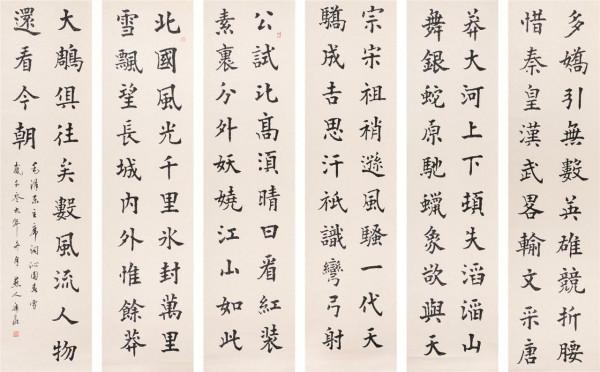 多嬌引無數英雄競折腰
惜秦皇漢武畧輸文采唐
莽大河上下頓失滔滔山
舞銀蛇原馳蠟象欲與天
宗宋祖稍遜風騷一代天
驕成吉思汗祗識彎弓射
公試比高須晴日看紅装
素裹分外妖嬈江山如此
北國風光千里冰封萬里
雪飄望長城內外惟餘莽
大鵰俱往矣數風流人物
還看今朝
毛澤东主席詞沁園春雪